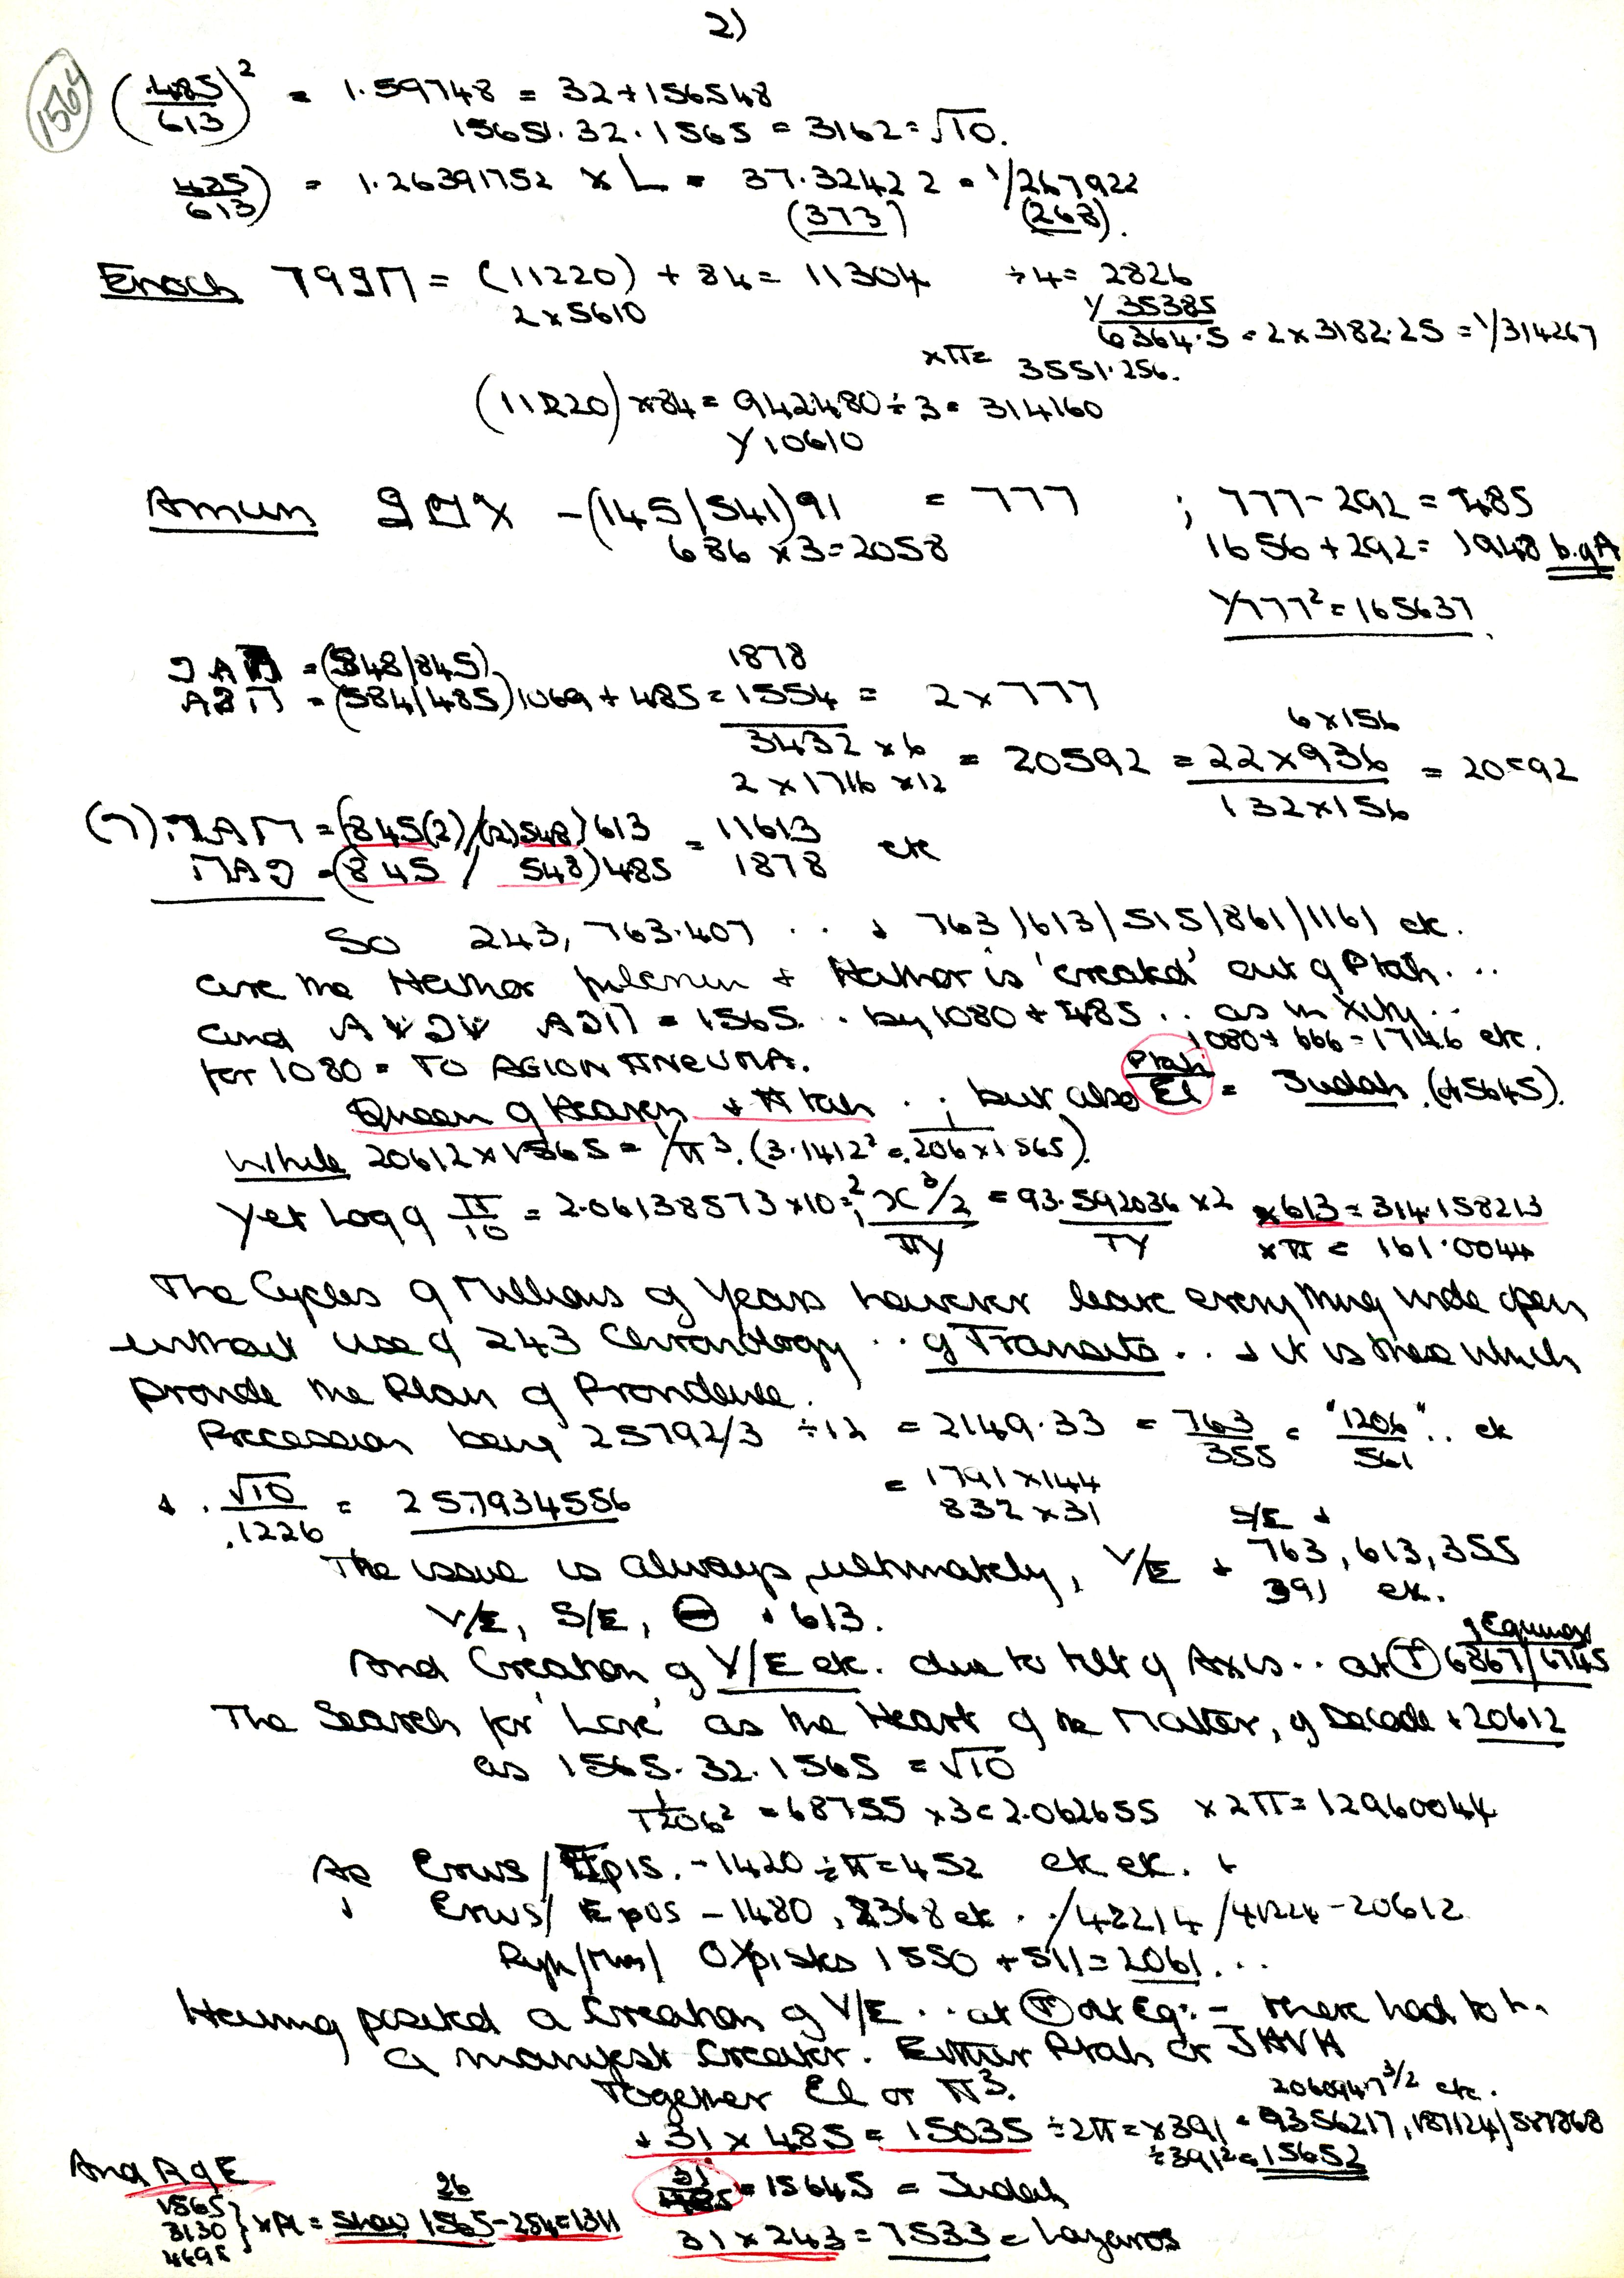 2)
1564
(485/613)² = 1.59748 = 32+156548
15651.32.1565 = 3162 = √10.
485/613) = 1.26391752 × L = 37.32422 = 1/267922
(373) (268).
Enoch = (11220) + 84 = 11304 ÷4= 2826
2×5610 1/35385
6364.5 = 2×3182.25 = 1/314267
×π= 3551.256.
(11220)×84 = 942480÷3 = 314160
1/10610
Amun -(145/541)91 = 777 ; 777-292 = 485
686 ×3=2058 1656+292= 1948
1/777²=165637.
=(548/845) 1878
=(584/485)1069 + 485 = 1554 = 2×777
6×156
3432 ×6 = 20592 = 22×936 = 20592
2×1716 ×12 132×156
=(845(2)/(2)548)613 = 11613 etc
=(845 / 548)485 1878
So 243, 763.407 .. + 763/613/515/861/1161 etc.
are the Hathor + Hathor is 'created' out of Ptah...
and = 1565 .. by 1080 + 485 .. as in ..
1080+ 666=1746 etc.
for 1080 = TO AGION ΠNEUMA.
Ptah
Queen of Heaven + Ptah .. but also El = Judah. (15645).
While 20612×1565 = 1/π³. (3.1412² = 1/206×1565).
Yet Log of π/10 = 2.06138573×10 = 93.592036 ×2 ×613=314.158213
πy TY ×π = 161.0044
The Cycles of Millions of Years however leave everything wide open
without use of 243 Chronology .. of Transits .. + it is these which
provide the Plan of Providence.
Precession being 25792/3 ÷12 = 2149.33 = 763/355 = "1206"/561 .. etc
= 1791×144
832×31
+ . √10/.1226 = 257934556
The issue is always, ultimately, V/E + S/E + 763, 613, 355
391 etc.
V/E, S/E, ⊖ + 613.
Equinox
And Creation of V/E etc. due to tilt of Axis .. at ♈ 6867/6745
The Search for 'Love' as the Heart of the Matter, of Decade + 20612
as 1565.32.1565 = √10
1/1206² = 68755 ×3=2.062655 ×2π=12960044
As Erws/ - 1420 ÷π=452 etc etc. +
+ Erws/ - 1480, 2368 etc .. /42214/41224-20612
1550 + 511=2061...
Having posited a Creation of V/E .. at ♈ Eq: - there had to be
a manifest Creator. Either Ptah or JHVH
Together El or π³. 2060947^3/2 etc.
+ 31 × 485 = 15035 ÷2π= ×391 = 9356217, 187124/577868
÷391²=15652
And R of E
1565
3130
4695
} ×Pi = 26 1565-254=1311
31/485 = 15645 = Judah
31×243 = 7533 = Lazaros